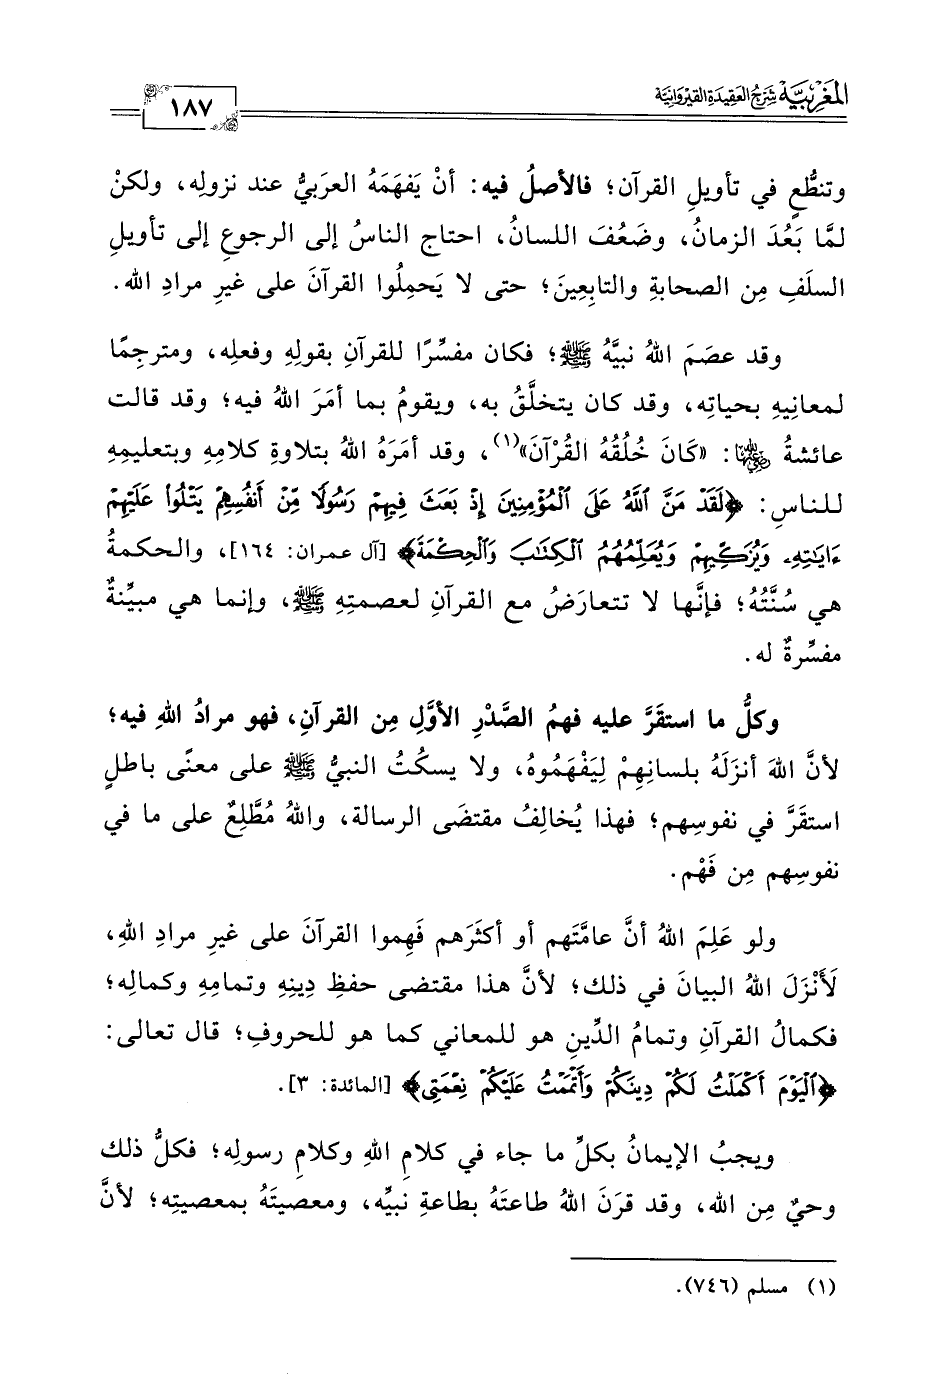 المَغْرِبِيَّة شَرْحُ العَقِيدَةِ القَيْرَوَانِيَّة
١٨٧
وتنطُّعٍ في تأويلِ القرآن؛ فالأصلُ فيه: أنْ يَفهَمَهُ العرَبيُّ عند نزولِه، ولكنْ
لمَّا بَعُدَ الزمانُ، وضَعُفَ اللسانُ، احتاج الناسُ إلى الرجوعِ إلى تأويلِ
السلَفِ مِن الصحابةِ والتابِعِينَ؛ حتى لا يَحمِلُوا القرآنَ على غيرِ مرادِ الله.
وقد عصَمَ اللهُ نبيَّهُ ﷺ؛ فكان مفسِّرًا للقرآنِ بقولِهِ وفعلِه، ومترجِمًا
لمعانِيهِ بحياتِه، وقد كان يتخلَّقُ به، ويقومُ بما أمَرَ اللهُ فيه؛ وقد قالت
عائشةُ رضي الله عنها: «كَانَ خُلُقُهُ القُرْآنَ»(١)، وقد أمَرَهُ اللهُ بتلاوةِ كلامِهِ وبتعليمِهِ
للناسِ: ﴿لَقَدْ مَنَّ ٱللَّهُ عَلَى ٱلْمُؤْمِنِينَ إِذْ بَعَثَ فِيهِمْ رَسُولًا مِّنْ أَنفُسِهِمْ يَتْلُوا۟ عَلَيْهِمْ
ءَايَٰتِهِۦ وَيُزَكِّيهِمْ وَيُعَلِّمُهُمُ ٱلْكِتَٰبَ وَٱلْحِكْمَةَ﴾ [آل عمران: ١٦٤]، والحكمةُ
هي سُنَّتُهُ؛ فإنَّها لا تتعارَضُ مع القرآنِ لعصمتِهِ ﷺ، وإنما هي مبيِّنةٌ
مفسِّرةٌ له.
وكلُّ ما استقَرَّ عليه فهمُ الصَّدْرِ الأوَّلِ مِن القرآنِ، فهو مرادُ اللهِ فيه؛
لأنَّ اللهَ أنزَلَهُ بلسانِهِمْ لِيَفْهَمُوهُ، ولا يسكُتُ النبيُّ ﷺ على معنًى باطلٍ
استقَرَّ في نفوسِهم؛ فهذا يُخالِفُ مقتضَى الرسالة، واللهُ مُطَّلِعٌ على ما في
نفوسِهم مِن فَهْم.
ولو عَلِمَ اللهُ أنَّ عامَّتَهم أو أكثَرَهم فَهِموا القرآنَ على غيرِ مرادِ اللهِ،
لَأَنْزَلَ اللهُ البيانَ في ذلك؛ لأنَّ هذا مقتضى حفظِ دِينِهِ وتمامِهِ وكمالِه؛
فكمالُ القرآنِ وتمامُ الدِّينِ هو للمعاني كما هو للحروفِ؛ قال تعالى:
﴿ٱلْيَوْمَ أَكْمَلْتُ لَكُمْ دِينَكُمْ وَأَتْمَمْتُ عَلَيْكُمْ نِعْمَتِى﴾ [المائدة: ٣].
ويجبُ الإيمانُ بكلِّ ما جاء في كلامِ اللهِ وكلامِ رسولِه؛ فكلُّ ذلك
وحيٌ مِن الله، وقد قرَنَ اللهُ طاعتَهُ بطاعةِ نبيِّه، ومعصيتَهُ بمعصيتِه؛ لأنَّ
(١) مسلم (٧٤٦).